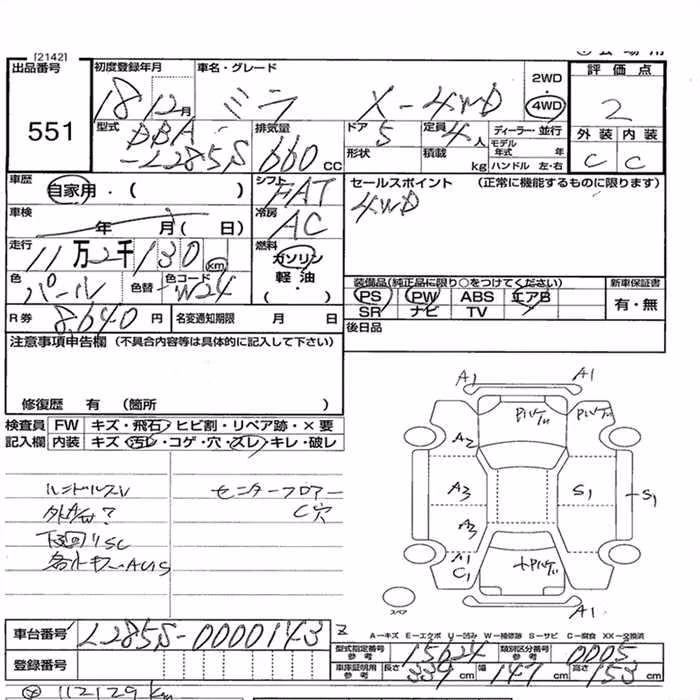 [2142]
出品番号
551
初度登録年月
18 12月
車名・グレード
ミラ X-4WD
2WD
・
4WD
評価点
2
外装 内装
C C
型式
DBA-
-L285S
排気量
660 CC
ドア
5
形状
定員
4人
積載
kg
ディーラー・並行
モデル
年式 年
ハンドル 左・右
車歴
自家用・( )
シフト
FAT
セールスポイント (正常に機能するものに限ります)
4WD
車検
年 月( 日)
冷房
AC
走行
11万2千130km
燃料
ガソリン
軽油
・( )
色
パール
色替
色コード
W24
装備品(純正品に限り○をつけてください)
新車保証書
PS PW ABS エアB
SR ナビ TV
有・無
R券
8,640円
名変通知期限 月 日
後日品
注意事項申告欄(不具合内容等は具体的に記入して下さい)
修復歴 有 (箇所 )
検査員
記入欄
FW キズ・飛石・ヒビ割・リペア跡・×要
内装 キズ・汚レ・コゲ・穴・スレ・キレ・破レ
ハンドルスレ
下回りSC
センターフロアー
C穴
A1
A1
A2
A3
A3
A1
C1
S1
S1
A1
スペア
A−キズ E−エクボ U−凹み W−補修跡 S−サビ C−腐食 XX−交換済
車台番号
L285S-0000143
登録番号
型式指定番号
参考
15624
類別区分番号
参考
0005
車庫証明用
参考
長さ
339cm
幅
147cm
高さ
153cm
112129km